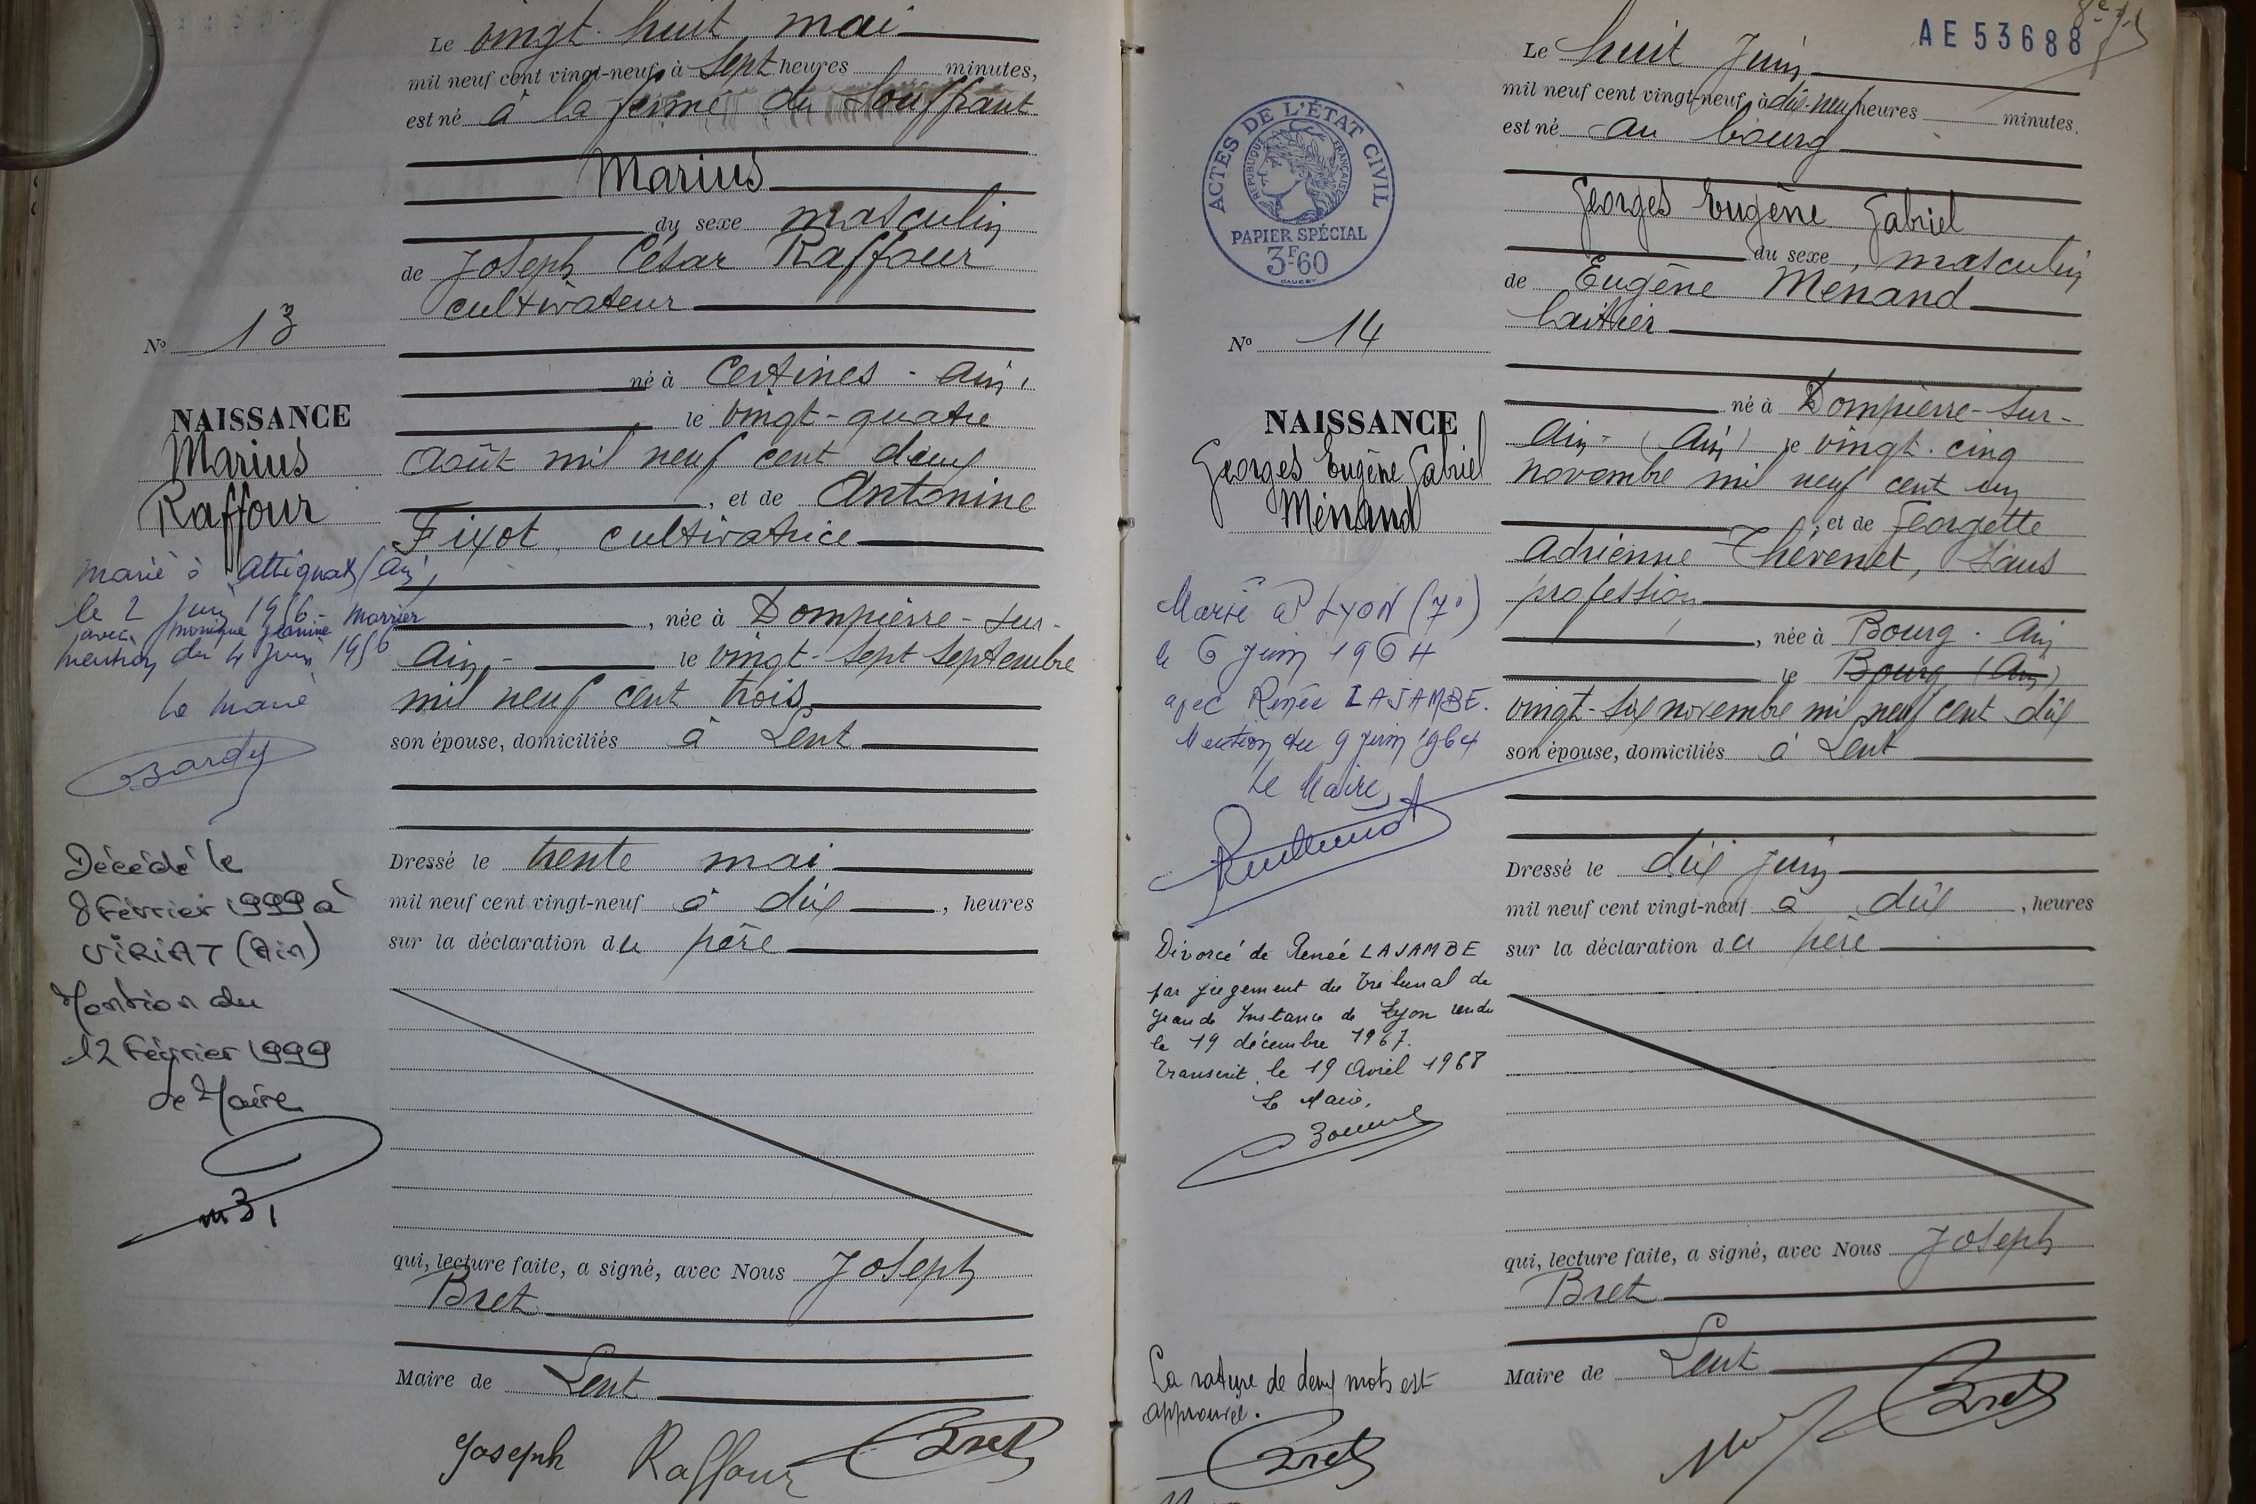 Le vingt-huit mai
mil neuf cent vingt-neuf à sept heures minutes,
est né à la ferme du Souffrant
Marius
du sexe masculin
de Joseph César Raffour
cultivateur
né à Certines - Ain,
le vingt-quatre
août mil neuf cent deux
, et de Antonine
Fixot, cultivatrice
, née à Dompierre-sur-
Ain, - le vingt-sept septembre
mil neuf cent trois
son épouse, domiciliés à Lent
Dressé le trente mai
mil neuf cent vingt-neuf à dix , heures
sur la déclaration du père
qui, lecture faite, a signé, avec Nous Joseph
Bret
Maire de Lent
Joseph Raffour Bret
No 13
NAISSANCE
Marius
Raffour
Marié à Attignat (Ain)
le 2 Juin 1956 - Marrier
avec Monique Jeanine
mention du 4 Juin 1956
Le maire
Bardy
Décédé le
8 Février 1999 à
VIRIAT (Ain)
Mention du
12 Février 1999
Le Maire
AE 53688
Le huit Juin
mil neuf cent vingt-neuf à dix-neuf heures minutes.
est né au bourg
Georges Eugène Gabriel
du sexe, masculin
de Eugène Menand
laitier
né à Dompierre-sur-
Ain - (Ain) le vingt-cinq
novembre mil neuf cent un
, et de Georgette
Adrienne Thévenet, sans
profession
, née à Bourg - Ain
le Bourg (Ain)
vingt-six novembre mil neuf cent dix
son épouse, domiciliés à Lent
Dressé le dix juin
mil neuf cent vingt-neuf à dix , heures
sur la déclaration du père
qui, lecture faite, a signé, avec Nous Joseph
Bret
Maire de Lent
Bret
ACTES DE L'ÉTAT CIVIL
RÉPUBLIQUE FRANÇAISE
PAPIER SPÉCIAL
3F60
No 14
NAISSANCE
Georges Eugène Gabriel
Ménand
Marié à LYON (7e)
le 6 juin 1964
avec Renée LAJAMBE.
Mention du 9 juin 1964
Le Maire,
Divorcé de Renée LAJAMBE
par jugement du Tribunal de
Grande Instance de Lyon rendu
le 19 décembre 1967.
Transcrit le 19 Avril 1968
Le Maire,
La rature de deux mots est
approuvée.
Bret